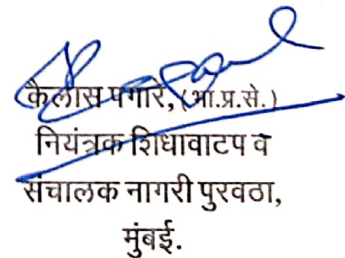 कैलास पगारे, (भा.प्र.से.)
नियंत्रक शिधावाटप व
संचालक नागरी पुरवठा,
मुंबई.